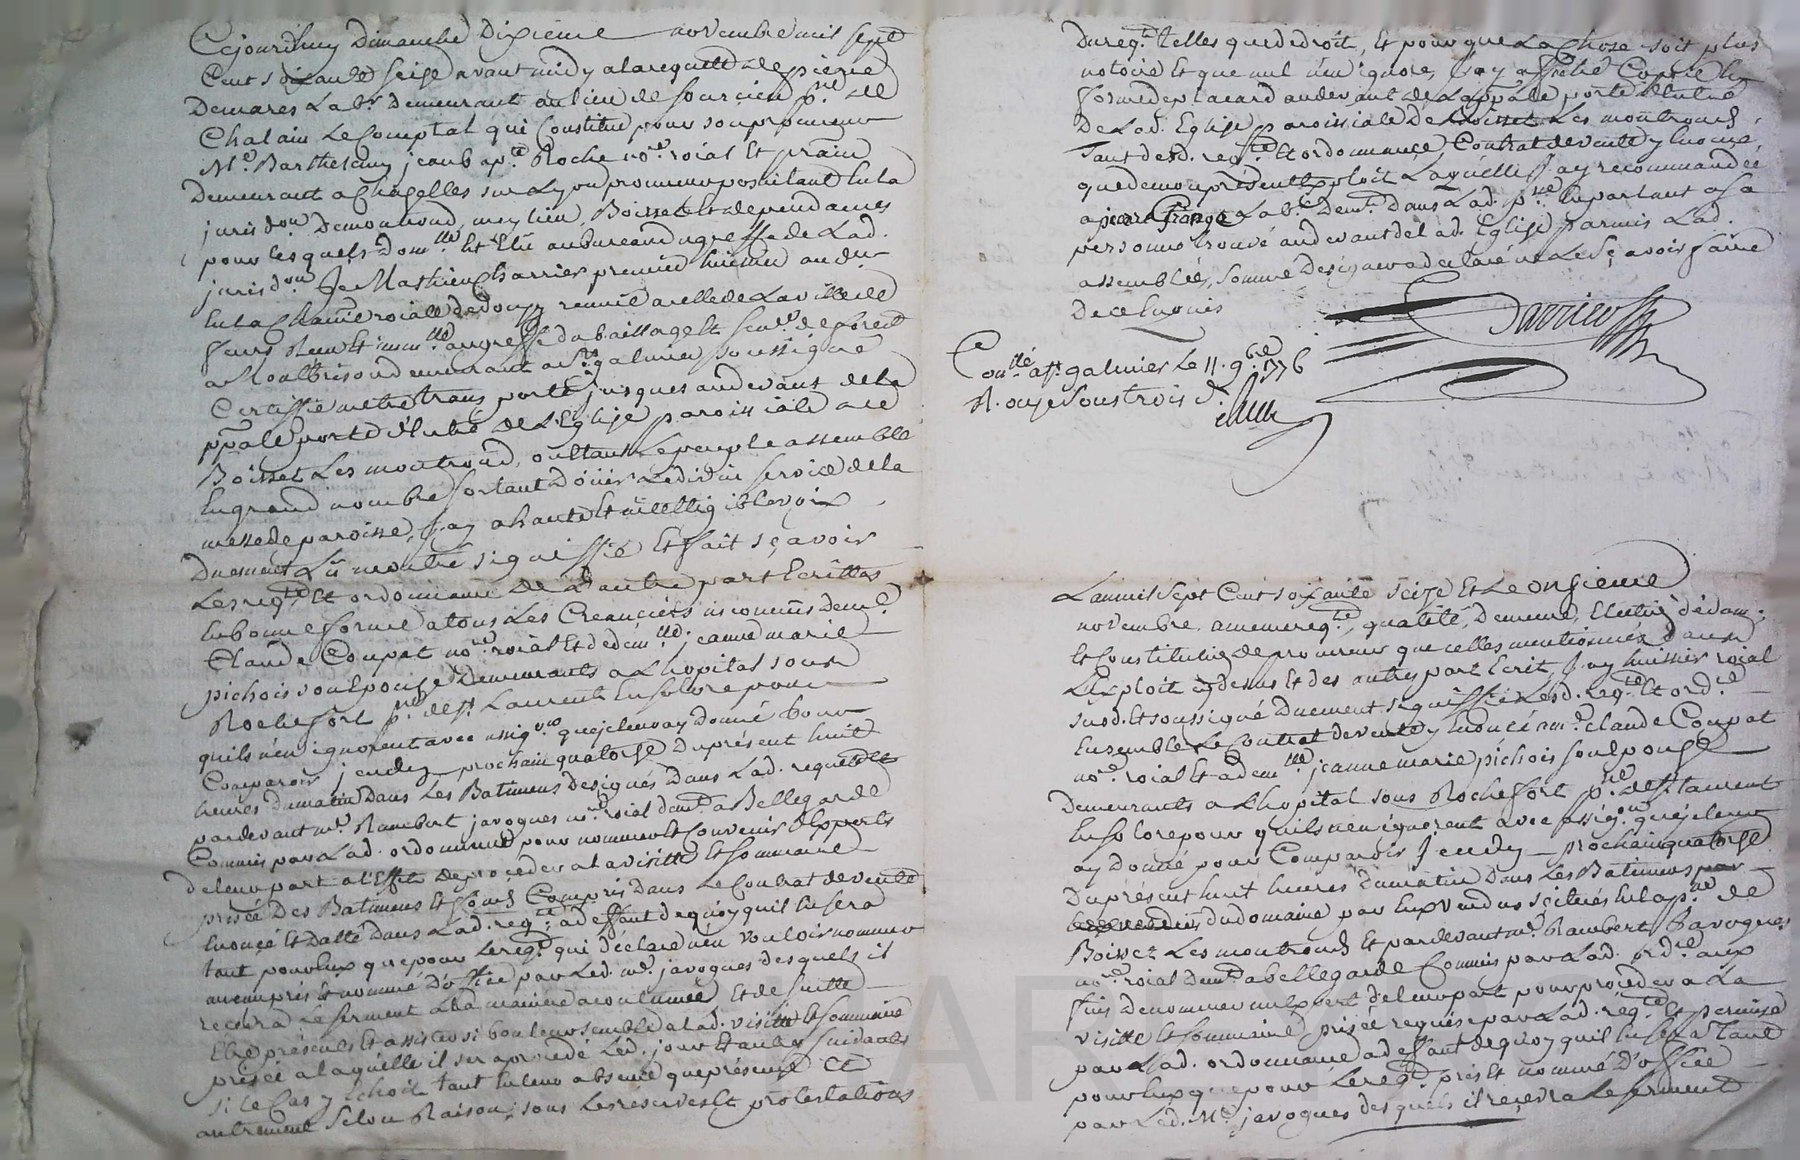 Cejourdhuy Dimanche Dixieme novembre mil sept
Cent soixante seize avant midy a la requette de pierre
Demares Lab.r Demeurant au lieu de sse de
Chalain Le Comptal qui Constitue pour son procureur
M.e Barthelemy jean bap.te Roche no.re roial et
Demeurant a Chazelles sur Lyon procureur postulant en la
jurisd.on De montrond, meylieu, Boisset et dependances
pour lesquels dom.lle est Elû au bureau du greffe de Lad.
jurisd.on Je Mathieu Charrier premier huissier audr
en la Chatnie roialle de donzy reunie a celle de La ville de
feurs Reçu et imm.llé au greffe du baillage et sen.ée de forest
a Montbrison demeurant a S.t galmier soussigné
Certiffie m'etre transporté jusques au devant de la
ppâle porte d'Entré de L'Eglise paroissiale de
Boisset Les montrond, ou etant Le peuple assemble
En grand nombre sortant d'ouir Le divin service de la
messe de paroisse, J'ay a haute et intelligible voix
Duement Lû montré signiffié et fait sçavoir
Les req.te et ordonnance de L'autre part Ecrittes
En bonne forme a tous Les Creanciers inconnus de m.e
Claude Coupat no.re roial et de dem.lle jeanne marie
pichois son Epouze Demeurants a L'hopital sous
Rochefort p.sse de s.t Laurent En solore pour
qu'ils n'en ignorent avec assig.on que je leur ay donné pour
Comparoir jeudy prochain quatorze du présent huit
heures du matin Dans Les Batimens designés Dans Lad. requette et
pardevant m.e Rambert javogues no.re roial dem.t a Bellegarde
Commis par Lad. ordonnance pour nommer et convenir d'Experts
de leur part a l'Effet de proceder a la visitte et sommaire
prisée Des Batimens et fonds Compris Dans Le Contrat de vente
Enoncé et Datté Dans Lad. req.te, a deffaut de quoy qu'il En sera
tant pour Eux que pour Le req.t qui déclare n'en vouloir nommer
aucun pris et nommé d'office par Led. m.e javogues desquels il
recevra Le serment a La maniere acoutumée Et de suitte
Etre présents et assister si bon leur semble a Lad. visitte et sommaire
prisée a laquelle il sera procédé Led. jour et autres suivants
si le Cas y Echoit tant En leur absence que présence Et
autrement selon Raison, sous Les reserves et protestations
du req.t telles que de droit, Et pour que La Chose soit plus
notoire et que nul n'en ignore, J'ay affiché Copie En
forme de placard au devant de La ppâle porte d'Entré
De Lad. Eglise paroissiale de Boisset Les montrond
Tant desd. req.te et ordonnance, Contrat de vente y Enoncé
que de mon présent Exploit Laquelle J'ay recommandée
a jean Lab.r Dem.t Dans Lad. p.sse En parlant a sa
personne trouvé au devant de lad. Eglise parmis Lad.
assemblée, sommé de signer a declaré ne Le sçavoir faire
De ce Enquis
Charrier
Con.llé a s.t galmier Le 11. 9.bre 1776
R. onze sous trois d.
L'an mil sept Cent soixante seize Et Le onzieme
novembre a meme req.te, qualité, demeure, Election de dom.
et Constitution de procureur que celles mentionnées dans
L'Exploit cy dessus Et des autres part Ecrit, J'ay huissier roial
susd. et soussigné Duement signiffié Lesd. req.te Et ord.ce
Ensemble Le Contrat de vente y Enoncé a m.e Claude Coupat
no.re roial et a dem.lle jeanne marie pichois son Epouze
Demeurants a L'hopital sous Rochefort p.sse de s.t Laurent
En solore pour qu'ils n'en ignorent avec assig.on que je leur
ay donné pour Comparoir Jeudy prochain quatorze
Du présent huit heures du matin Dans Les Batimens
du domaine par Eux vendu scitués En la p.sse de
Boisset Les montrond et pardevant m.e Rambert Javogues
no.re roial dem.t a bellegarde Commis par Lad. ord.ce aux
fins de nommer un Expert de leur part pour proceder a La
visitte et sommaire prisée requise par Lad. req.te Et permise
par Lad. ordonnance a deffaut de quoy qu'il En sera tant
pour Eux que pour Le req.t pris Et nommé D'office
par Led. M.e javogues desquels il recevra Le serment